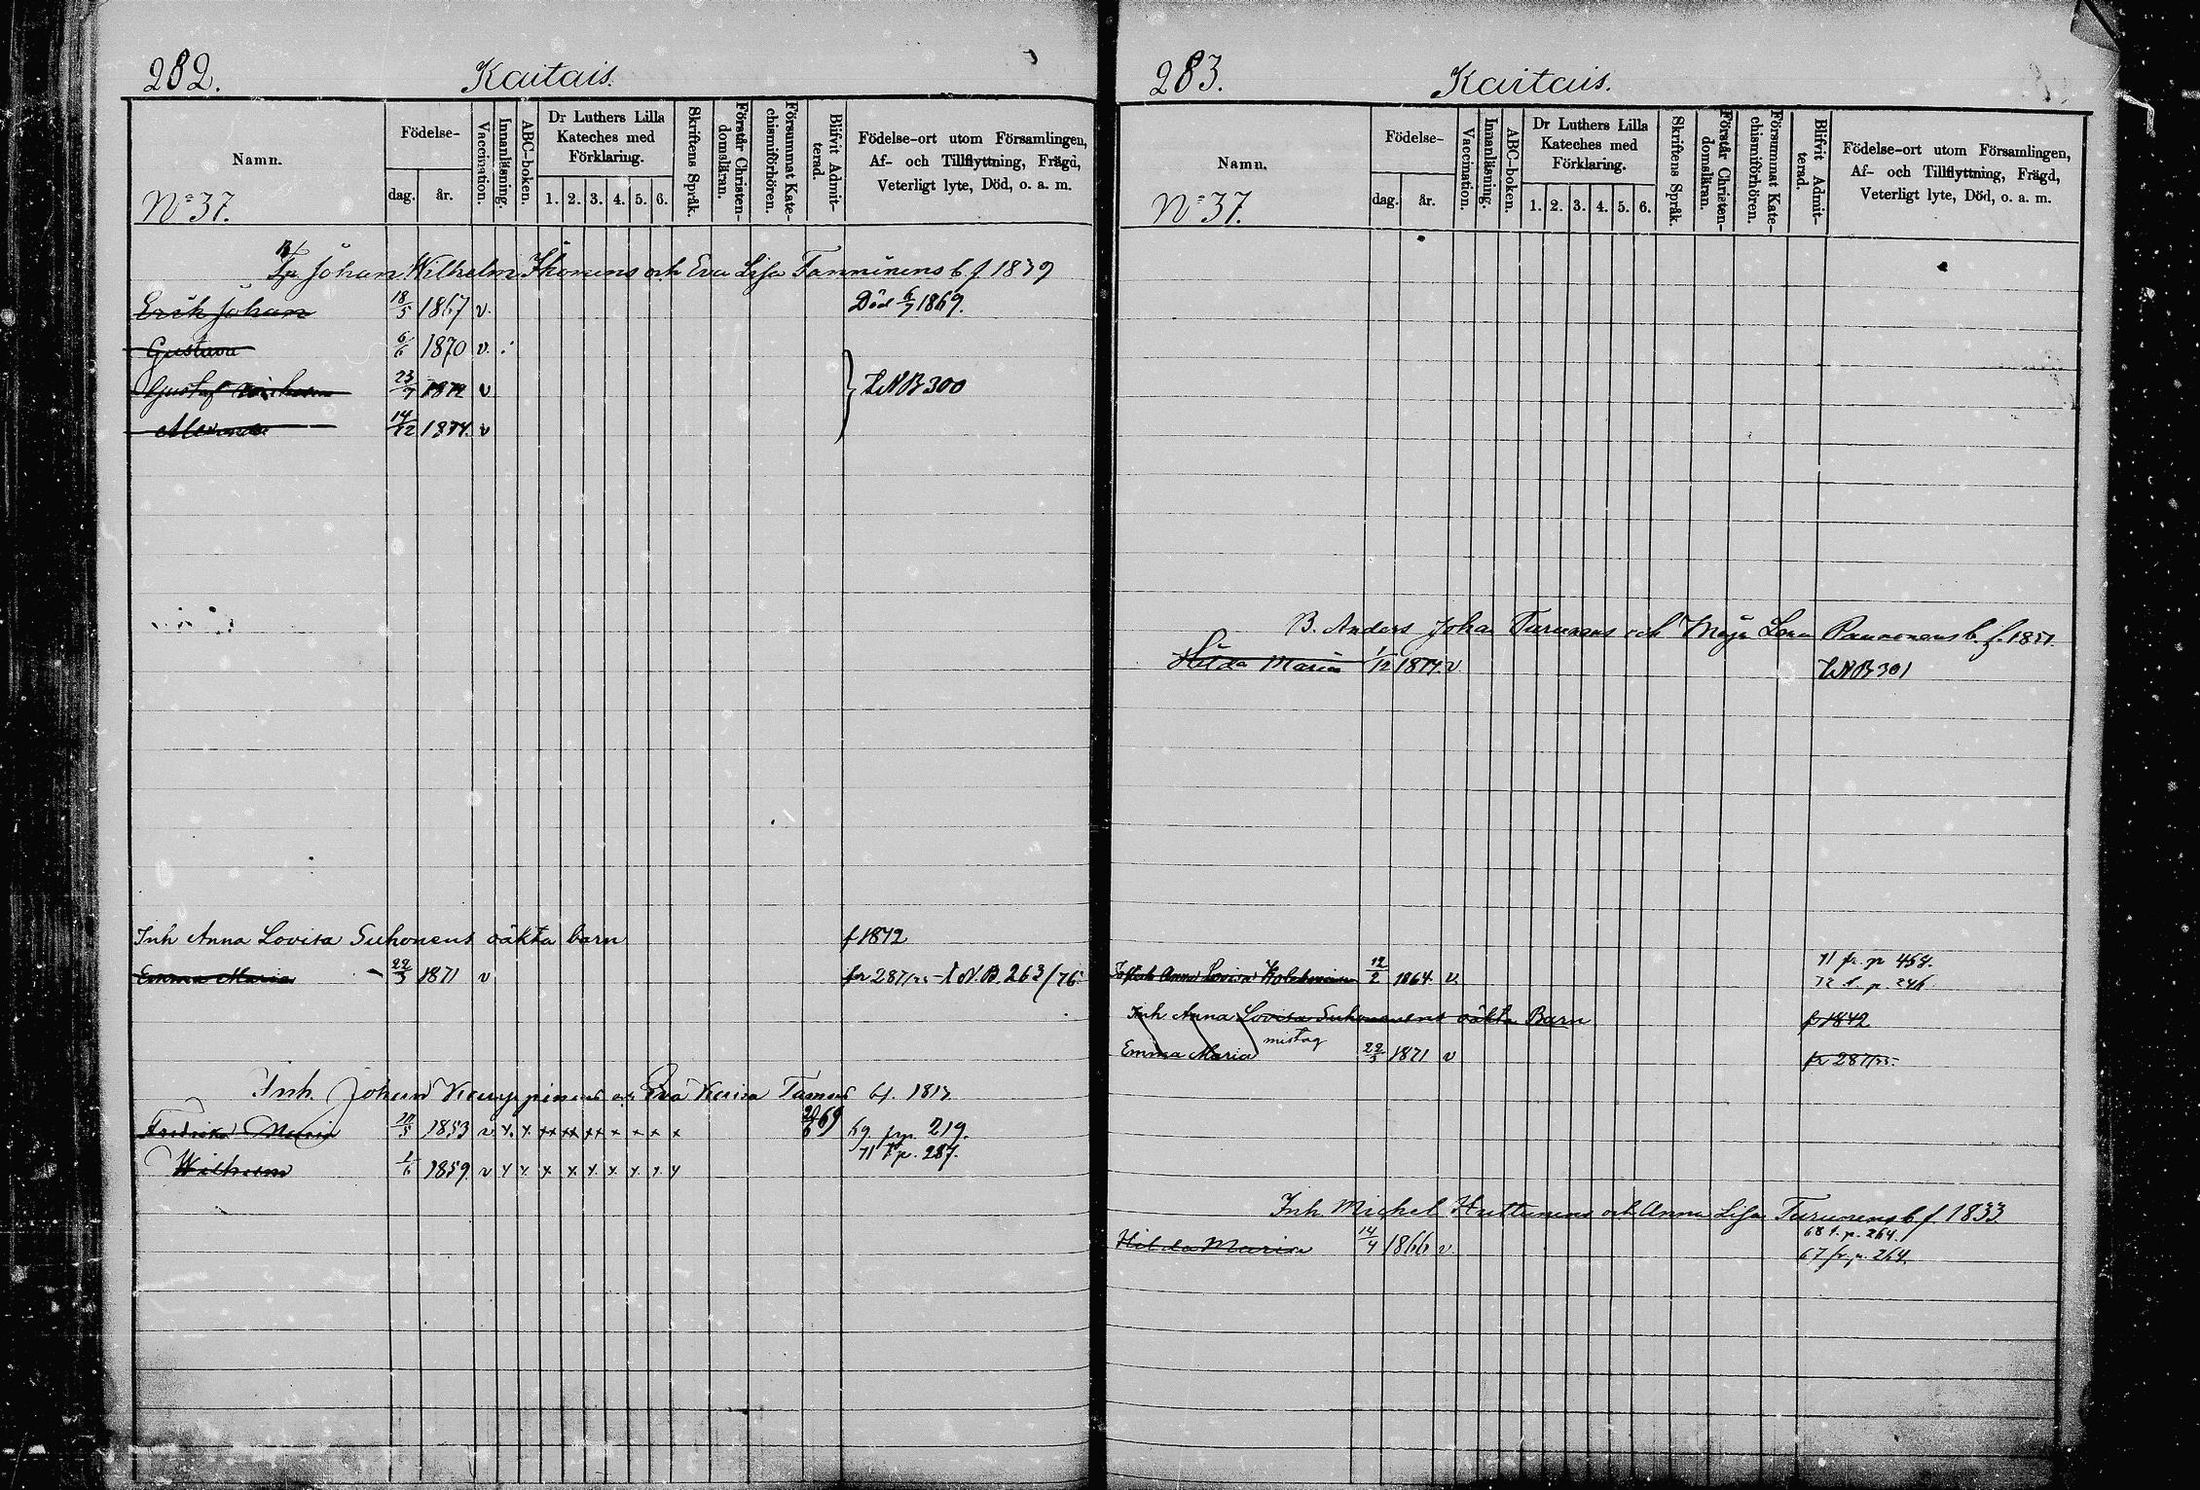 282.
Kaitais.
Namn.
Födelse-
dag.
år.
Vaccination.
Innanläsning.
ABC-boken.
Dr Luthers Lilla Kateches med Förklaring.
1. 2. 3. 4. 5. 6.
Skriftens Språk.
Förstår Christen-domsläran.
Försummat Kate-chismiförhören.
Blifvit Admit-terad.
Födelse-ort utom Församlingen,
Af- och Tillflyttning, Frägd,
Veterligt lyte, Död, o. a. m.
No 37.
Johan Wilhelm Ikonens och Eva Lisa Tanninens b f 1839
Erik Johan 18/5 1867 v. Död 6/7 1869.
Gustava 6/6 1870 v.
Gustaf 23/7 1872 v } LNB 300
Alexander 14/12 1874. v
Inh Anna Lovisa Suhonens oäkta barn f 1842
Emma Maria 22/3 1871 v fr 287/75 - L N.B. 263/76
Inh. Johan Kauppinens och Eva Tamens bf. 1813
Fredrika Maria 1853 v x x xx xx xx x x x x 69 69 fr p. 219.
71 t p. 287.
Wilhelm 1/6 1859. v x x x x x x x x x
283.
Kaitais.
Namn.
Födelse-
dag.
år.
Vaccination.
Innanläsning.
ABC-boken.
Dr Luthers Lilla Kateches med Förklaring.
1. 2. 3. 4. 5. 6.
Skriftens Språk.
Förstår Christen-domsläran.
Försummat Kate-chismiförhören.
Blifvit Admit-terad.
Födelse-ort utom Församlingen,
Af- och Tillflyttning, Frägd,
Veterligt lyte, Död, o. a. m.
No 37.
B. Anders Johan Turunens och Maja Lena b. f. 1851.
Hilda Maria 1/12 1874. v LNB 301
71 fr. p 454.
Anna Lovisa 12/2 1864. v 72 t. p. 246.
Inh Anna Lovisa Suhonens oäkta Barn f 1842
mistag
Emma Maria 22/3 1871 v fr 287/75.
Inh Michel Huttunens och Anna Lisa Turunens b f 1833
68 t. p. 264.
Hilda Maria 14/4 1866 v
67 fr. p. 264.